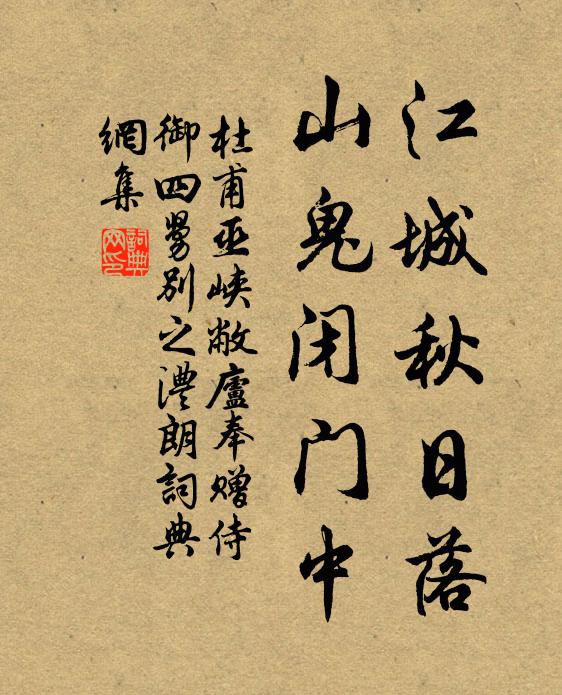 江城秋日落
山鬼闭门中
杜甫巫峡敝廬奉赠侍
御四舅别之澧朗詞典
網集
詞典
网印